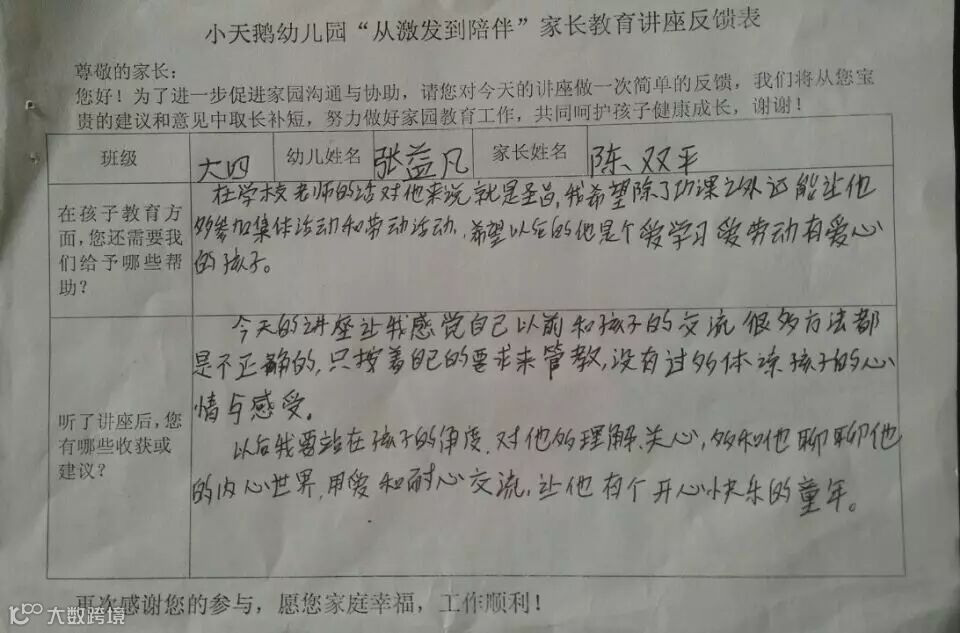 小天鹅幼儿园“从激发到陪伴”家长教育讲座反馈表
尊敬的家长：
您好！为了进一步促进家园沟通与协助，请您对今天的讲座做一次简单的反馈，我们将从您宝
贵的建议和意见中取长补短，努力做好家园教育工作，共同呵护孩子健康成长，谢谢！
班级 大四 幼儿姓名 张益凡 家长姓名 陈双平
在孩子教育方
面，您还需要我
们给予哪些帮
助？
在学校老师的话对他来说就是圣旨，我希望除了功课之外还能让他
多参加集体活动和劳动活动，希望以后的他是个爱学习爱劳动有爱心
的孩子。
听了讲座后，您
有哪些收获或
建议？
今天的讲座让我感觉自己以前和孩子的交流很多方法都
是不正确的，只按着自己的要求来管教，没有过多体凉孩子的心
情与感受。
以后我要站在孩子的角度，对他多理解、关心，多和他聊聊他
的内心世界，用爱和耐心交流，让他有个开心快乐的童年。
再次感谢您的参与，愿您家庭幸福，工作顺利！
大数跨境